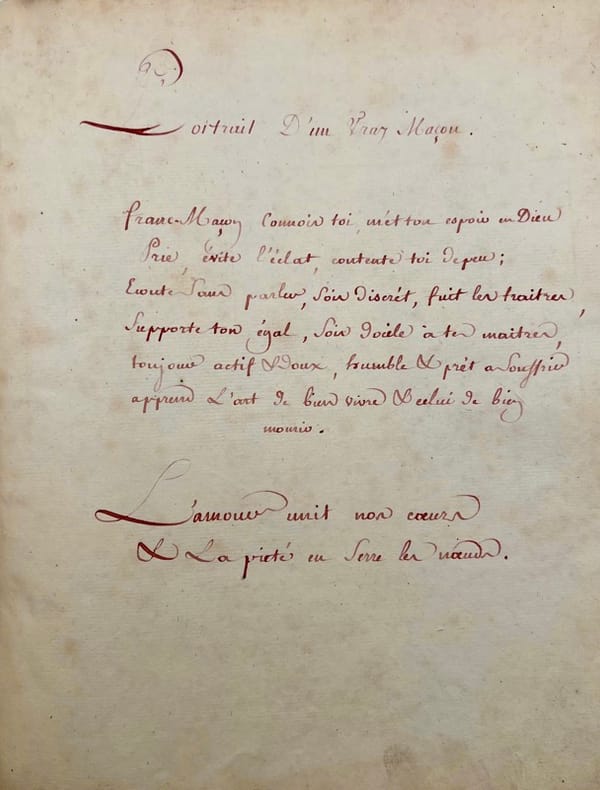 Portrait D'un Vray Maçon.
franc-Maçon Connois toi, met ton espoir en Dieu
Prie, évite l'éclat, contente toi de peu ;
Ecoute Sans parler, Sois discrét, fuit les traitres,
Supporte ton égal, Sois docile a tes maitres,
toujours actif & doux, humble & prét a Souffrir
apprens L'art de bien vivre & celui de bien
mourir.
L'amour unit nos cœurs
& La pieté en Serre les nœuds.